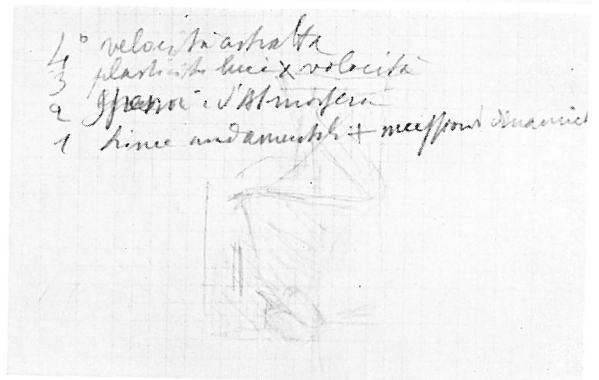 4° velocità astratta
3 plasticità luci x velocità
2 d'atmosfera
1 linee andamentali + successioni dinamiche